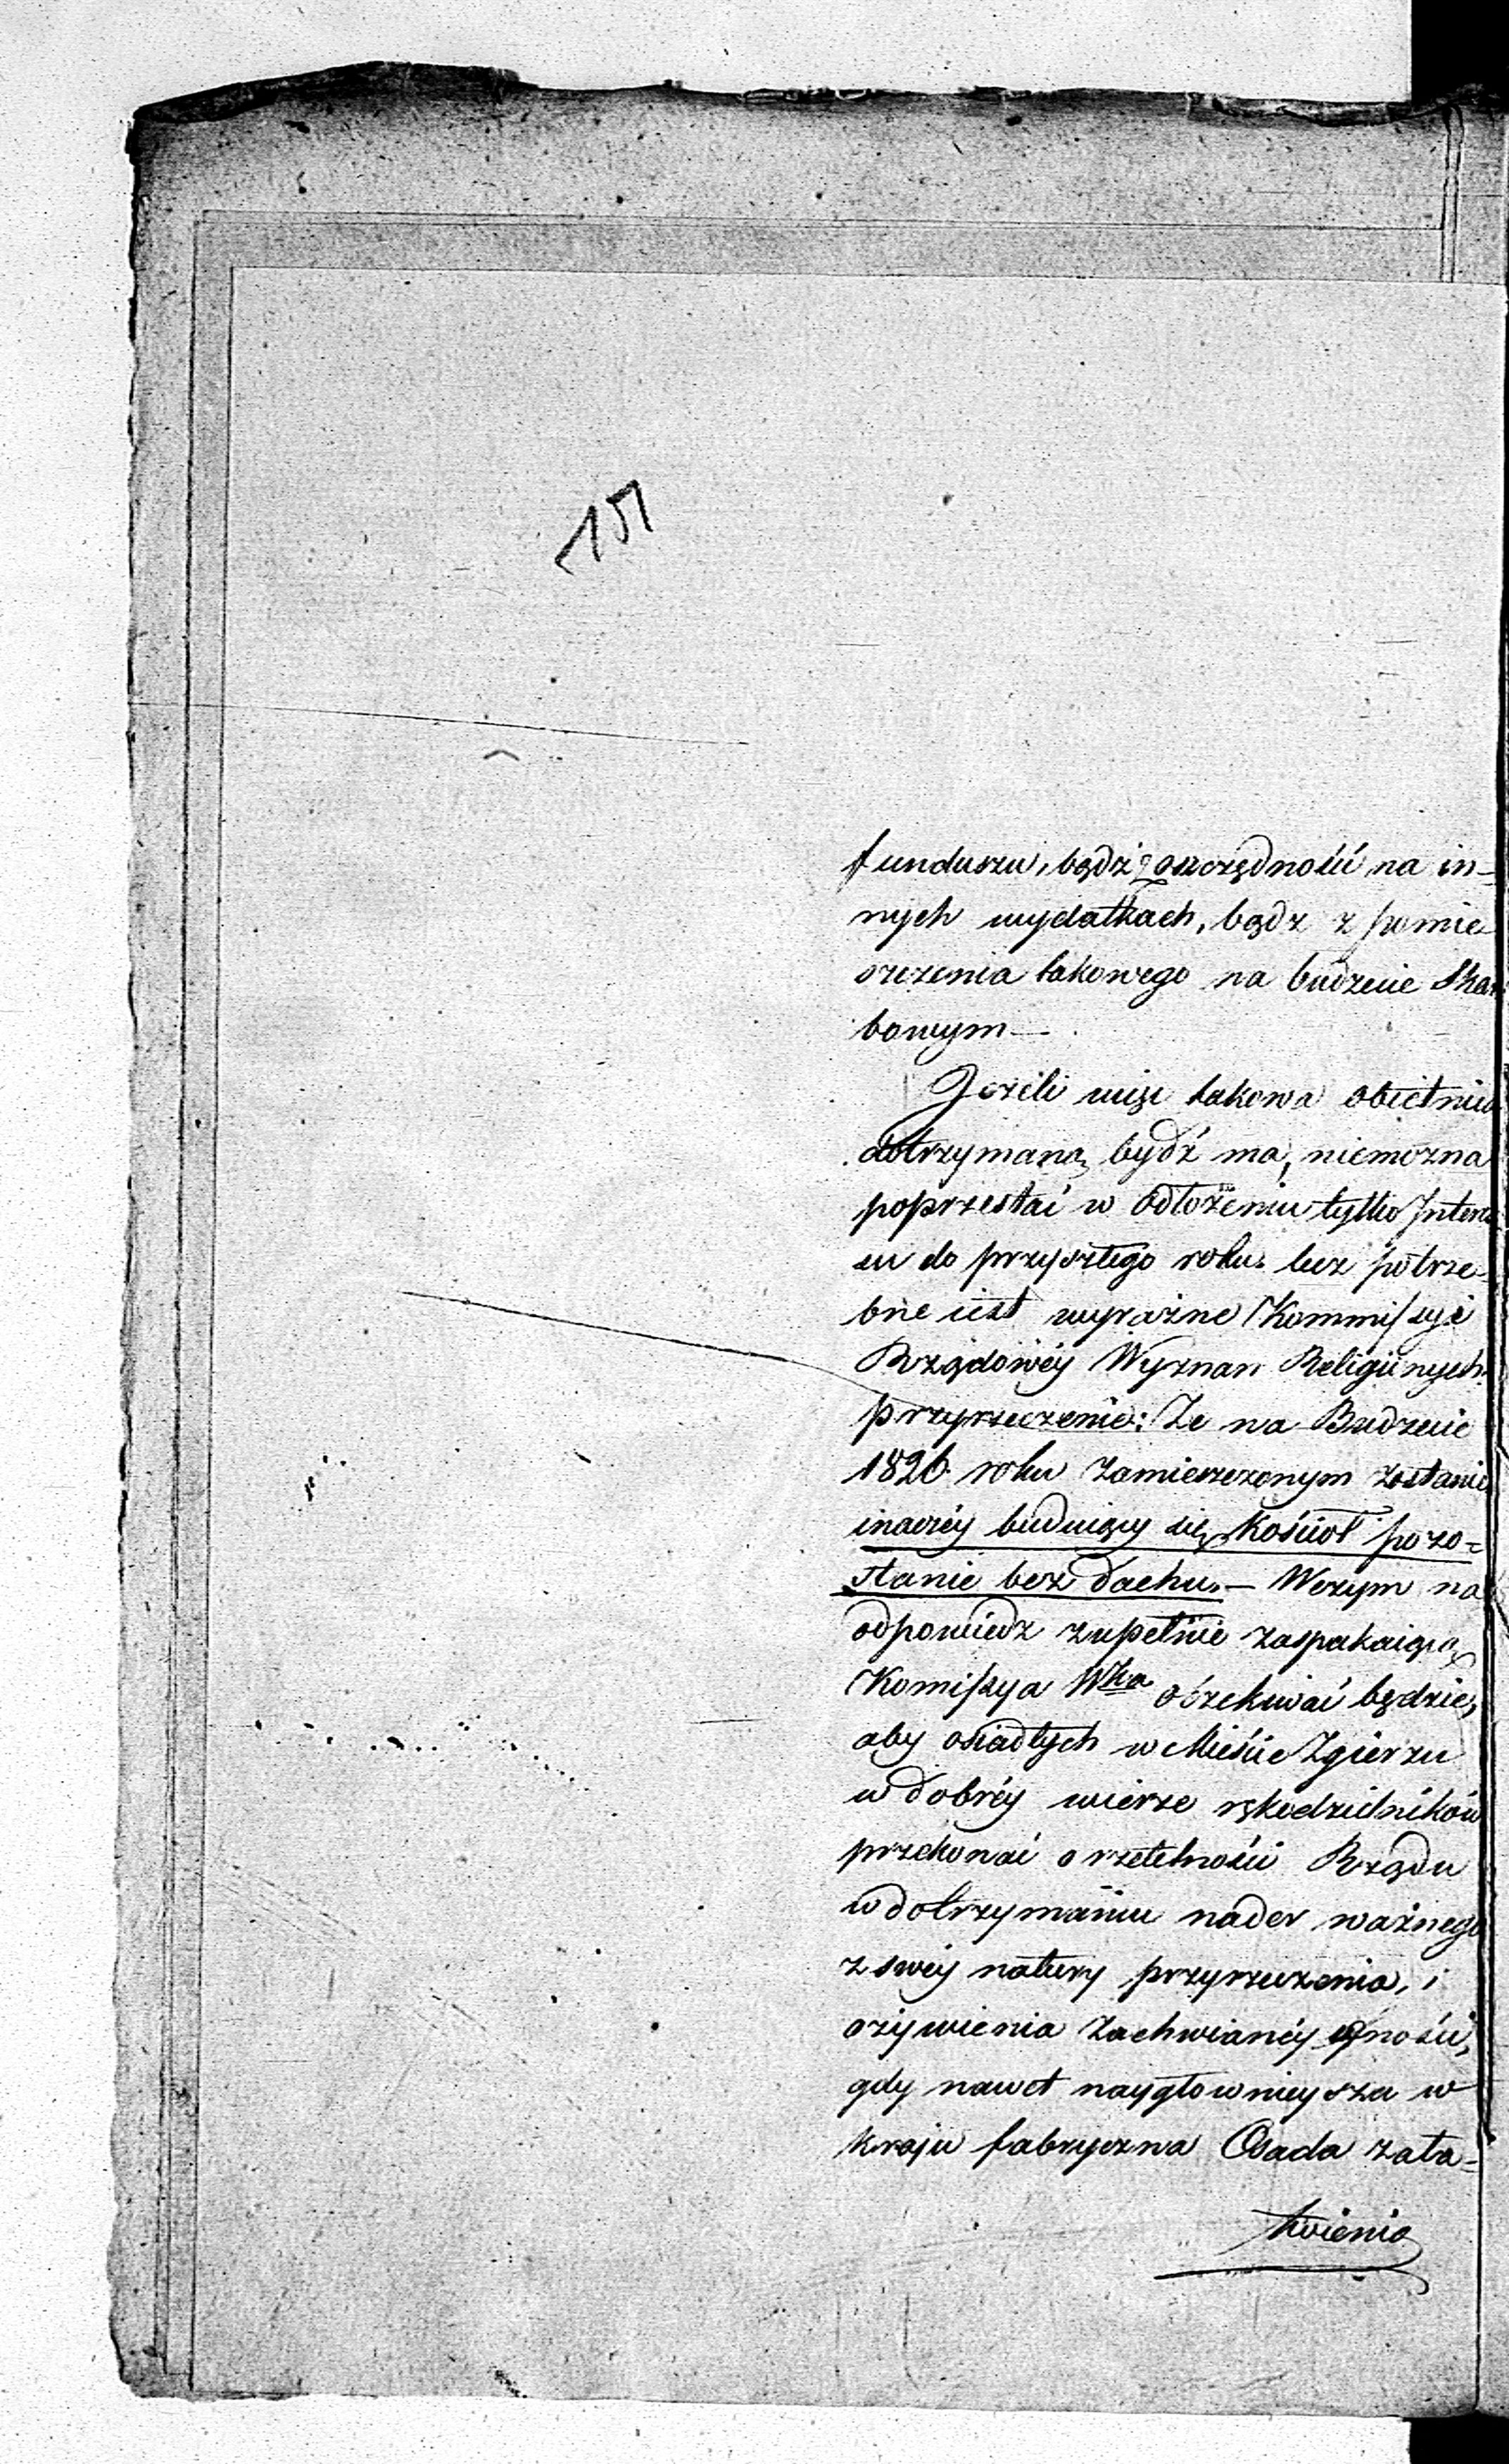 151
funduszu, bądź z oszczędności na in-
nych wydatkach, bądz z pomie
szczenia takowego na budżecie Skar
bowym —
Jeżeli więc takowa obietnica
dotrzymaną bydź ma, niemożna
poprzestać w odłożeniu tylko Interes
su do przyszłego roku. lecz potrze-
bne iest wyraźne Kommissyi
Rządowéy Wyznan Religiinych
przyrzeczenie: Ze na Budzecie
1826 roku zamieszczonym zostanie
inaczéy buduiący się Kościoł pozo=
stanie bez dachu. — Wczym na
odpowiedz zupełnie zaspakaiącą
Komissya Wka oczekiwać będzie,
aby osiadłych w Mieście Zgierzu
w dobréy wierze rękodzielników
przekonać o rzetelności Rządu
w dotrzymaniu nader ważnego
z swéy natury przyrzeczenia, i
ożywienia zachwianéy ufności,
gdy nawet naygłownieysza w
kraju fabryczna Osada zała-
twienia